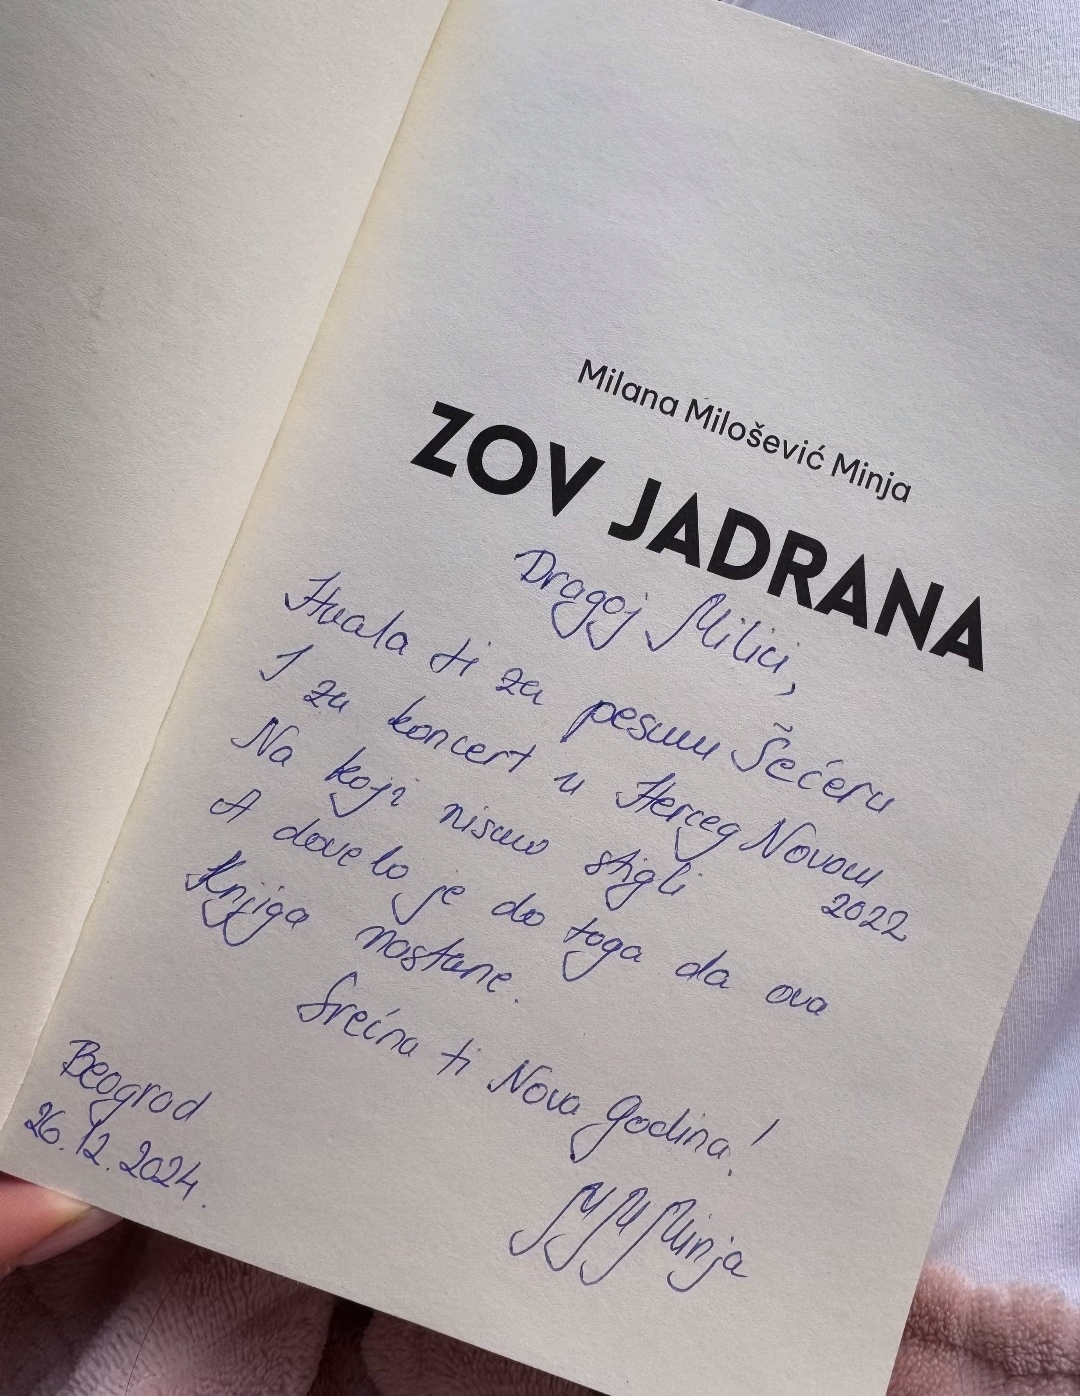 Milana Milošević Minja
ZOV JADRANA
Dragoj Milici,
Hvala ti za pesmu Šećeru
I za koncert u Herceg Novom
2022
Na koji nismo stigli
A dovelo je do toga da ova
Knjiga nastane.
Srećna ti Nova Godina!
Beograd
26.12.2024.
MM Minja